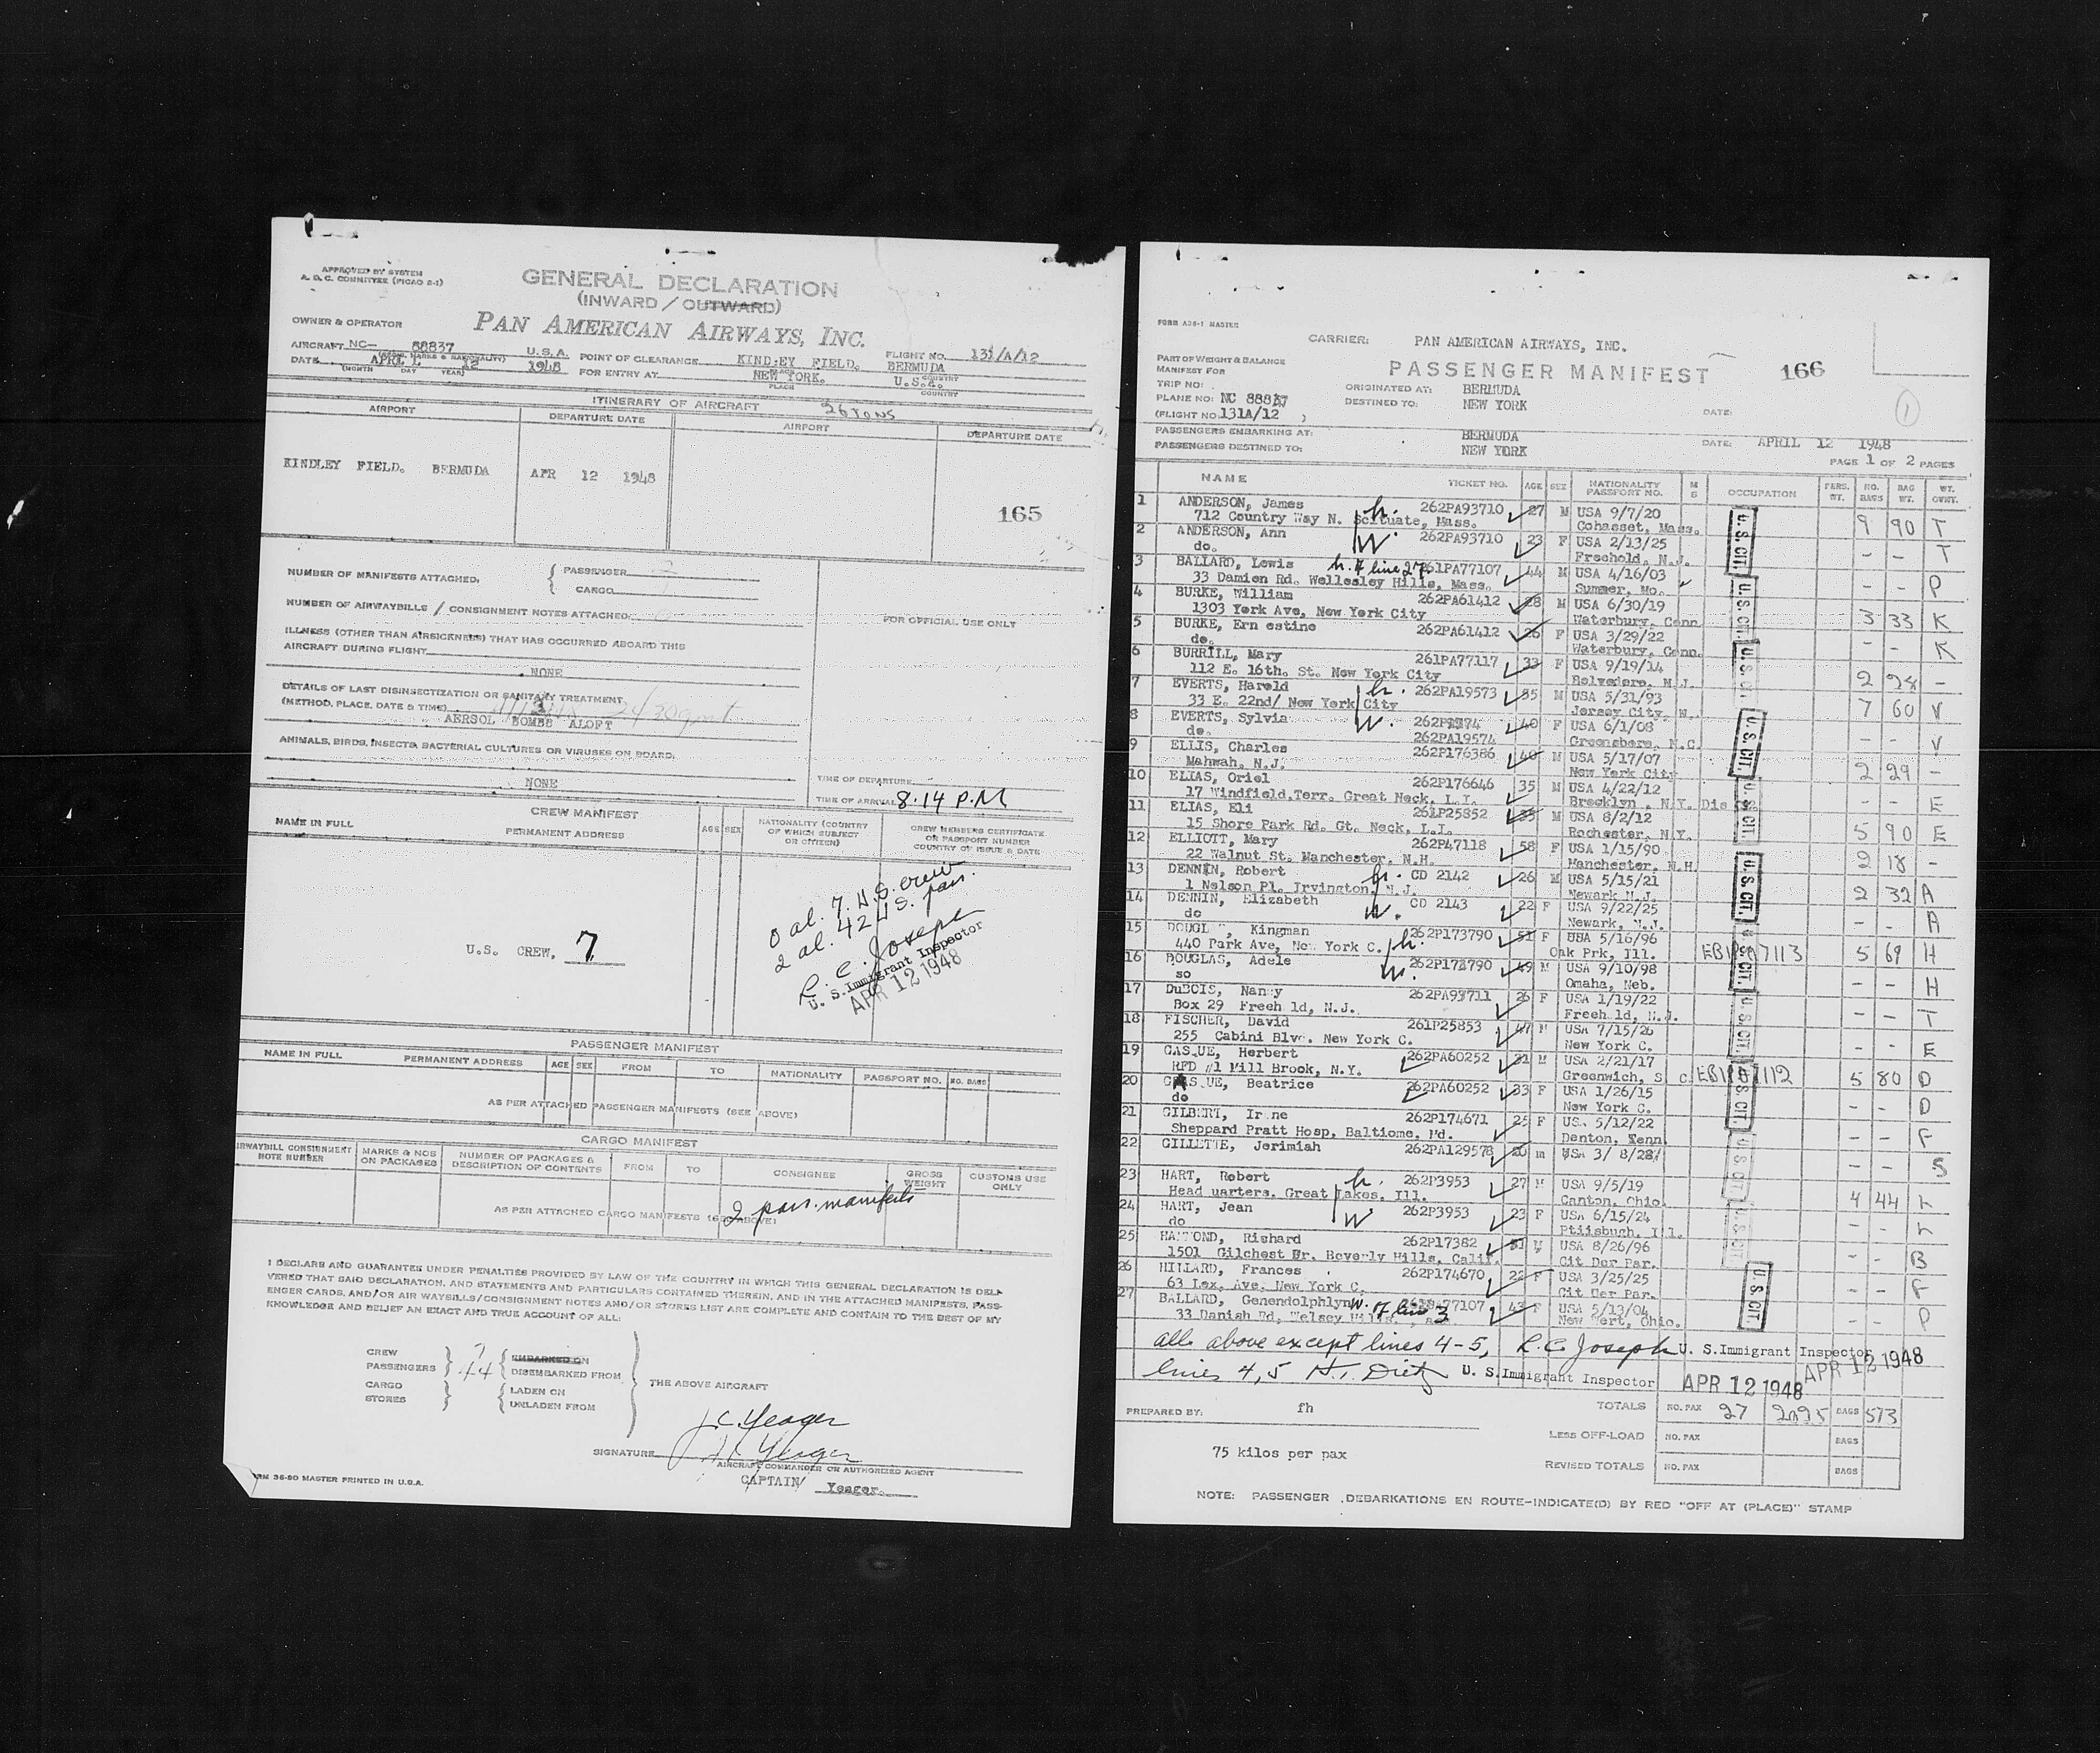 APPROVED BY SYSTEM
A. D. C. COMMITTEE (PICAO 2-1)
GENERAL DECLARATION
(INWARD / OUTWARD)
OWNER & OPERATOR
PAN AMERICAN AIRWAYS, INC.
AIRCRAFT NC- 88837 U.S.A. POINT OF CLEARANCE KIND:EY FIELD. BERMUDA FLIGHT NO. 131/A/12
DATE APRIL 12 1948 FOR ENTRY AT NEW YORK. U.S.A.
(MONTH DAY YEAR) PLACE COUNTRY
ITINERARY OF AIRCRAFT 26 TONS
AIRPORT DEPARTURE DATE AIRPORT DEPARTURE DATE
KINDLEY FIELD. BERMUDA APR 12 1948
165
NUMBER OF MANIFESTS ATTACHED. PASSENGER 2
CARGO
NUMBER OF AIRWAYBILLS / CONSIGNMENT NOTES ATTACHED:
FOR OFFICIAL USE ONLY
ILLNESS (OTHER THAN AIRSICKNESS) THAT HAS OCCURRED ABOARD THIS
AIRCRAFT DURING FLIGHT
NONE
DETAILS OF LAST DISINSECTIZATION OR SANITARY TREATMENT
(METHOD, PLACE, DATE & TIME)
AERSOL BOMBS ALOFT
ANIMALS, BIRDS, INSECTS, BACTERIAL CULTURES OR VIRUSES ON BOARD:
NONE
TIME OF DEPARTURE
TIME OF ARRIVAL 8.14 P.M
CREW MANIFEST
NAME IN FULL PERMANENT ADDRESS AGE SEX NATIONALITY (COUNTRY OF WHICH SUBJECT OR CITIZEN) CREW MEMBERS CERTIFICATE OR PASSPORT NUMBER COUNTRY OF ISSUE & DATE
0 al. 7. U.S. crew
2 al. 42 U.S. pass.
R. C. Joseph
U. S. Immigrant Inspector
APR 12 1948
U.S. CREW. 7
PASSENGER MANIFEST
NAME IN FULL PERMANENT ADDRESS AGE SEX FROM TO NATIONALITY PASSPORT NO. NO. BAGS
AS PER ATTACHED PASSENGER MANIFESTS (SEE ABOVE)
CARGO MANIFEST
IRWAYBILL CONSIGNMENT NOTE NUMBER MARKS & NOS ON PACKAGES NUMBER OF PACKAGES & DESCRIPTION OF CONTENTS FROM TO CONSIGNEE GROSS WEIGHT CUSTOMS USE ONLY
2 pass. manifests
AS PER ATTACHED CARGO MANIFESTS (SEE ABOVE)
I DECLARE AND GUARANTEE UNDER PENALTIES PROVIDED BY LAW OF THE COUNTRY IN WHICH THIS GENERAL DECLARATION IS DELI-
VERED THAT SAID DECLARATION, AND STATEMENTS AND PARTICULARS CONTAINED THEREIN, AND IN THE ATTACHED MANIFESTS, PASS-
ENGER CARDS, AND/OR AIR WAYBILLS/CONSIGNMENT NOTES AND/OR STORES LIST ARE COMPLETE AND CONTAIN TO THE BEST OF MY
KNOWLEDGE AND BELIEF AN EXACT AND TRUE ACCOUNT OF ALL:
CREW 7 EMBARKED ON
PASSENGERS 44 DISEMBARKED FROM
CARGO LADEN ON THE ABOVE AIRCRAFT
STORES UNLADEN FROM
J C. Yeager
SIGNATURE J C Yeager
AIRCRAFT COMMANDER OR AUTHORIZED AGENT
CAPTAIN/ Yeager.
RM 36-90 MASTER PRINTED IN U.S.A.
FORM A36-1 MASTER
CARRIER: PAN AMERICAN AIRWAYS, INC.
PART OF WEIGHT & BALANCE
MANIFEST FOR
PASSENGER MANIFEST 166
TRIP NO: ORIGINATED AT: BERMUDA
PLANE NO: NC 88837 DESTINED TO: NEW YORK DATE: 1
(FLIGHT NO. 131A/12 )
PASSENGERS EMBARKING AT: BERMUDA DATE: APRIL 12 1948
PASSENGERS DESTINED TO: NEW YORK
PAGE 1 OF 2 PAGES
NAME TICKET NO. AGE SEX NATIONALITY PASSPORT NO. M S OCCUPATION PERS. WT. NO. BAGS BAG WT. WT. CVNT.
1 ANDERSON, James h. 262PA93710 27 M USA 9/7/20 U.S. CIT. 9 90 T
712 Country Way N. Scituate, Mass. Cohasset, Mass.
2 ANDERSON, Ann W. 262PA93710 23 F USA 2/13/25 - - T
do. Freehold, N.J.
3 BALLARD, Lewis h. of line 27 261PA77107 44 M USA 4/16/03 - - P
33 Damien Rd. Wellesley Hills, Mass. Summer, Mo.
4 BURKE, William 262PA61412 28 M USA 6/30/19 U.S. CIT. 3 33 K
1303 York Ave, New York City Waterbury, Conn
5 BURKE, Ern estine 262PA61412 26 F USA 3/29/22 - - K
do. Waterbury, Conn.
6 BURRILL, Mary 261PA77117 33 F USA 9/19/14 2 28 -
112 E. 16th. St. New York City Belvedere, N.J.
7 EVERTS, Harold h. 262PA19573 55 M USA 5/31/93 7 60 V
33 E. 22nd/ New York City Jersey City, N.
8 EVERTS, Sylvia W. 40 F USA 6/1/08 U.S. CIT. - - V
do. 262PA19574 Greensboro, N.C.
9 ELLIS, Charles 262P176386 40 M USA 5/17/07 2 29 -
Mahwah, N.J. New York City
10 ELIAS, Oriel 262P176646 35 M USA 4/22/12 - - E
17 Windfield,Terr. Great Neck, L.I. Brooklyn, N.Y. Dis
11 ELIAS, Eli 261P25852 35 M USA 8/2/12 5 90 E
15 Shore Park Rd. Gt. Neck, L.I. Rochester, N.Y.
12 ELLIOTT, Mary 262P47118 58 F USA 1/15/90 2 18 -
22 Walnut St. Manchester, N.H. Manchester, N.H.
13 DENNIN, Robert h. CD 2142 26 M USA 5/15/21 U.S. CIT. 2 32 A
1 Nelson Pl. Irvington, N.J. Newark N.J.
14 DENNIN, Elizabeth W. CD 2143 22 F USA 9/22/25 - - A
do Newark, N.J.
15 DOUGL , Kingman 262P173790 51 F USA 5/16/96 5 69 H
440 Park Ave, New York C. h. Oak Prk, Ill.
16 DOUGLAS, Adele W. 262P173790 49 M USA 9/10/98 - - H
so Omaha, Neb.
17 DuBOIS, Nancy 262PA93711 26 F USA 1/19/22 - - T
Box 29 Freeh ld, N.J. Freeh ld, N.J.
18 FISCHER, David 261P25853 47 M USA 7/15/26 - - E
255 Cabini Blvd. New York C. New York C.
19 GASQUE, Herbert 262PA60252 31 M USA 2/21/17 5 80 D
RFD #1 Mill Brook, N.Y. Greenwich, S C.
20 GASQUE, Beatrice 262PA60252 33 F USA 1/26/15 - - D
do New York C.
21 GILBERT, Irene 262P174671 25 F US. 5/12/22 - - F
Sheppard Pratt Hosp, Baltiome, Md. Denton, Tenn
22 GILLETTE, Jerimiah 262PA129578 20 m USA 3/ 8/28/ - - S
23 HART, Robert h. 262P3953 27 M USA 9/5/19 4 44 L
Head uarters, Great Lakes, Ill. Canton, Ohio.
24 HART, Jean W 262P3953 23 F USA 6/15/24 - - L
do Ptiisbugh, Ill.
25 HAMMOND, Rishard 262P17382 51 M USA 8/26/96 - - B
1501 Gilchest Dr. Beverly Hills, Calif. Cit Der Par.
26 HILLARD, Frances 262P174670 22 F USA 3/25/25 U.S. CIT. - - F
63 Lex. Ave. New York C. Cit Der Par.
27 BALLARD, Genendolphlyn W. of line 3 43 F USA 5/13/04 - - P
33 Danish Rd, Welsey Hills New Wert, Ohio.
all above except lines 4-5, R.C. Joseph U. S. Immigrant Inspector
APR 12 1948
lines 4,5 H. T. Dietz U. S. Immigrant Inspector APR 12 1948
PREPARED BY: fh TOTALS NO. PAX 27 2025 BAGS 573
LESS OFF-LOAD NO. PAX BAGS
75 kilos per pax
REVISED TOTALS NO. PAX BAGS
NOTE: PASSENGER DEBARKATIONS EN ROUTE-INDICATE(D) BY RED "OFF AT (PLACE)" STAMP